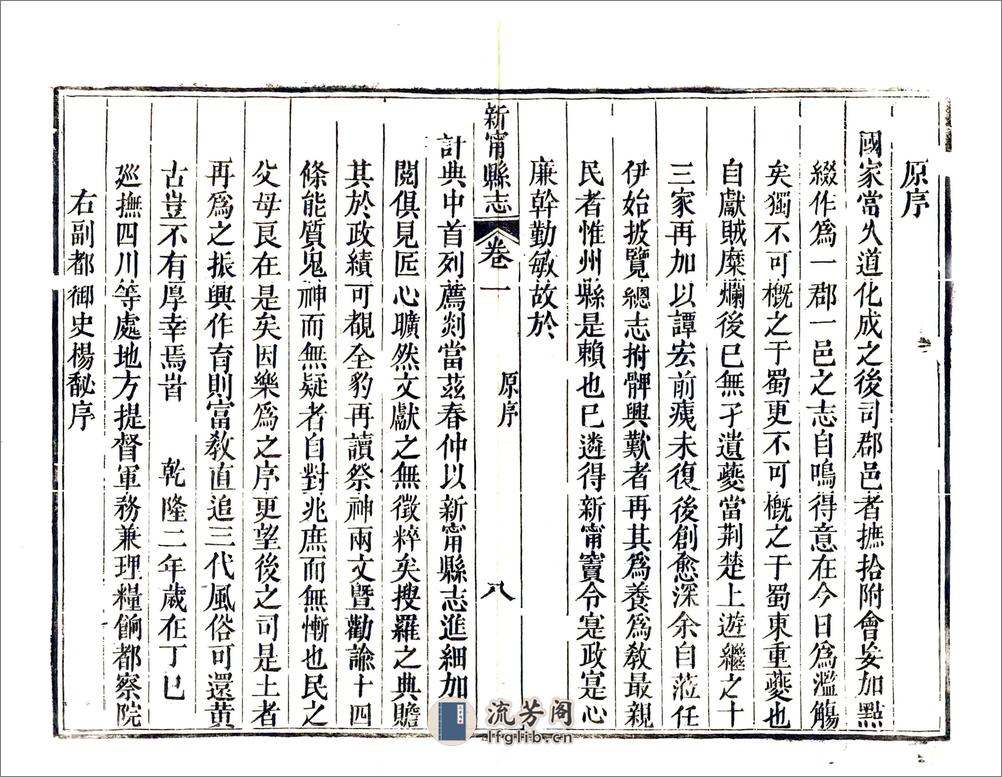 原序
國家當久道化成之後司郡邑者摭拾附會妄加點
綴作爲一郡一邑之志自鳴得意在今日爲濫觴
矣獨不可槪之于蜀更不可槪之于蜀東重夔也
自獻賊糜爛後已無孑遺夔當荆楚上遊繼之十
三家再加以譚宏前痍未復後創愈深余自蒞任
伊始披覽總志拊髀興歎者再其爲養爲敎最親
民者惟州縣是賴也已遴得新甯竇令寔政寔心
廉幹勤敏故於
新甯縣志
卷一
原序
八
計典中首列薦剡當茲春仲以新甯縣志進細加
閱俱見匠心曠然文獻之無徵粹矣搜羅之典贍
其於政績可覩全豹再讀祭神兩文暨勸諭十四
條能質鬼神而無疑者自對兆庶而無慚也民之
父母艮在是矣因樂爲之序更望後之司是土者
再爲之振興作育則富敎直追三代風俗可還黄
古豈不有厚幸焉峕 乾隆二年歲在丁巳
廵撫四川等處地方提督軍務兼理糧餉都察院
右副都御史楊馝序
流芳阁
lfglib.cn